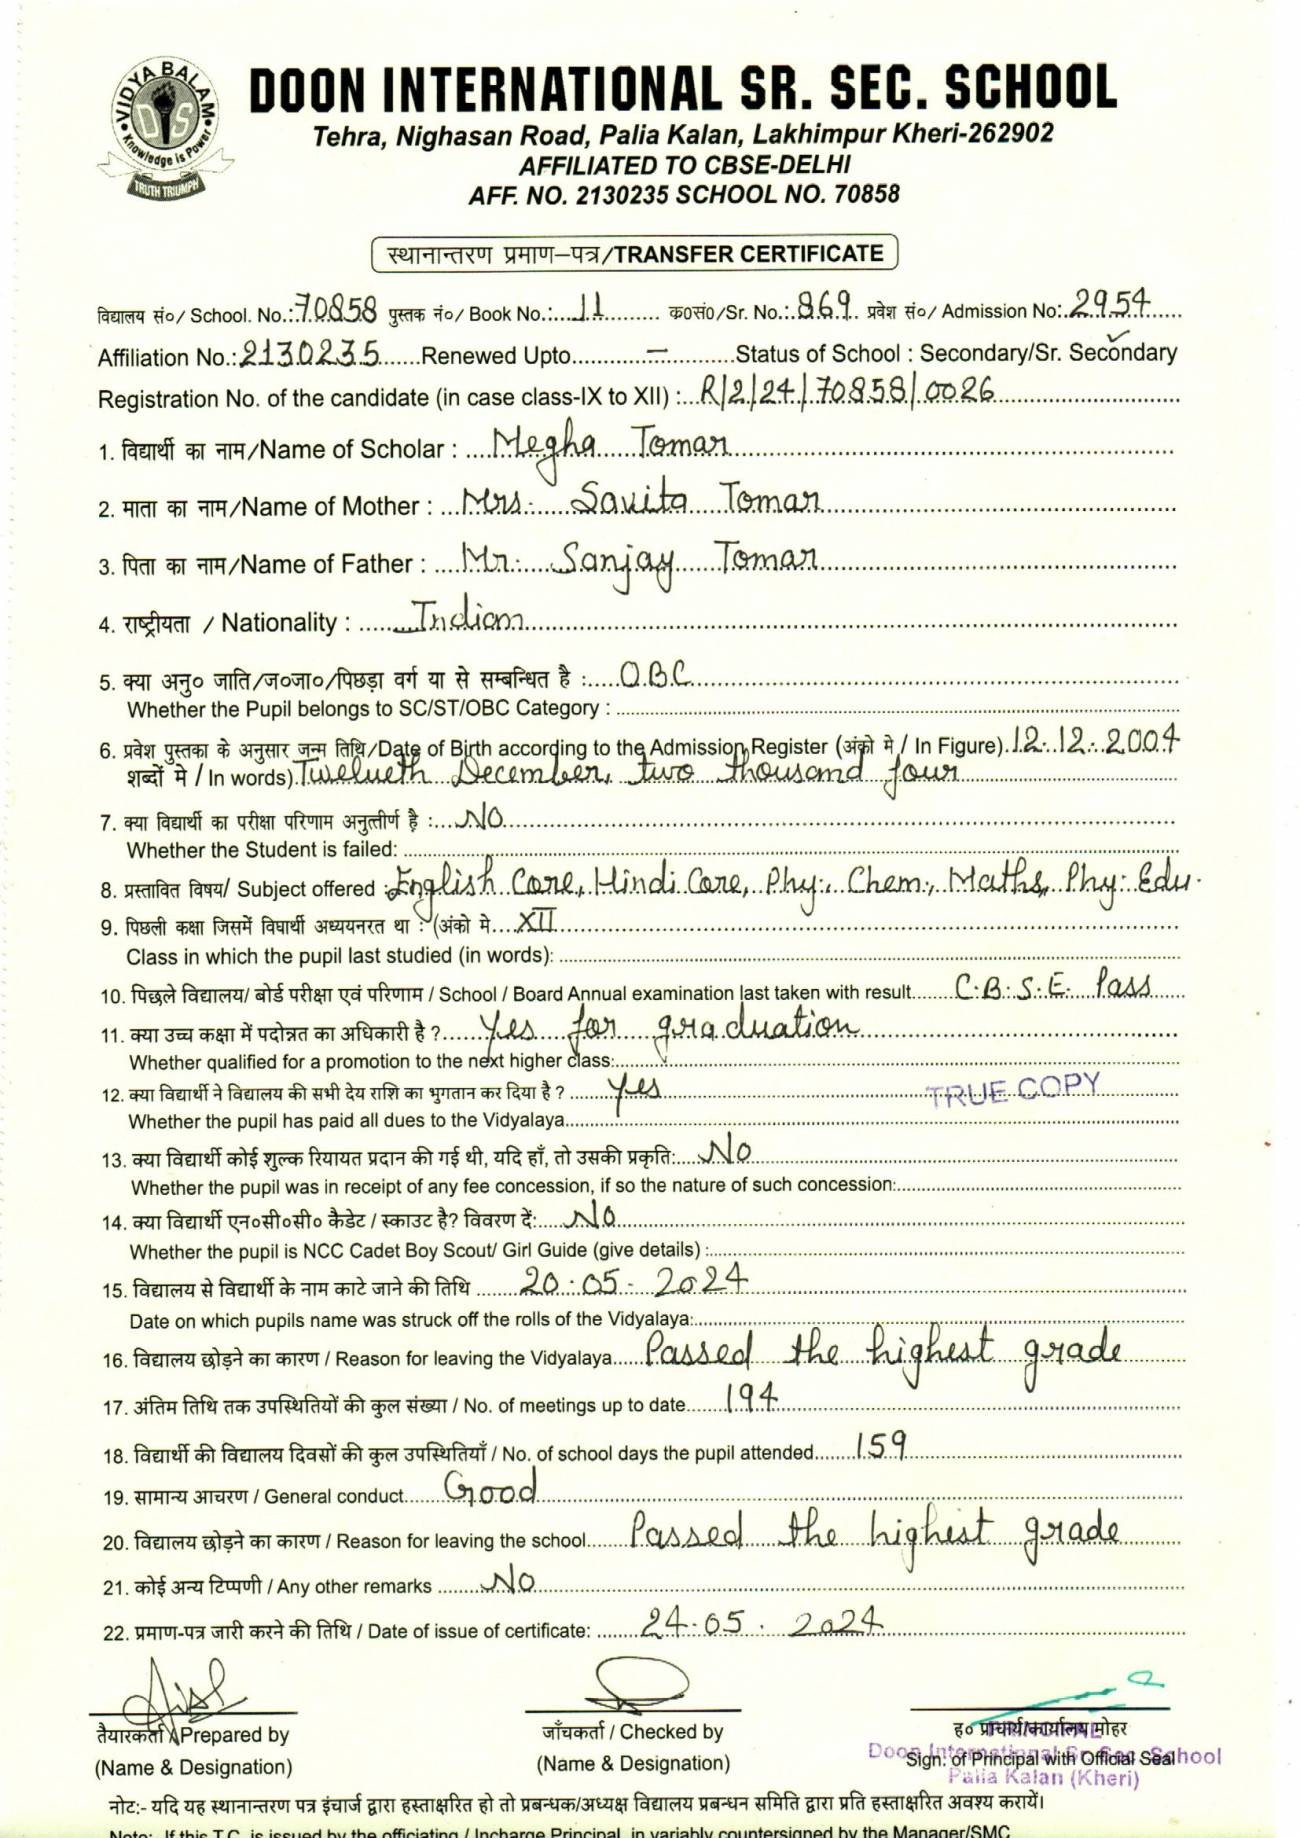 VIDYA BALAM
DIS
Knowledge is Power
TRUTH TRIUMPH
DOON INTERNATIONAL SR. SEC. SCHOOL
Tehra, Nighasan Road, Palia Kalan, Lakhimpur Kheri-262902
AFFILIATED TO CBSE-DELHI
AFF. NO. 2130235 SCHOOL NO. 70858
स्थानान्तरण प्रमाण–पत्र/TRANSFER CERTIFICATE
विद्यालय सं०/ School. No.:70858 पुस्तक नं०/ Book No.:....11.... क०सं०/Sr. No.:.869. प्रवेश सं०/ Admission No:.2954
Affiliation No.:2130235......Renewed Upto......–......Status of School : Secondary/Sr. Secondary ✓
Registration No. of the candidate (in case class-IX to XII) :...R/2/24/70858/0026
1. विद्यार्थी का नाम/Name of Scholar : ....Megha Tomar
2. माता का नाम/Name of Mother : ...Mrs. Savita Tomar
3. पिता का नाम/Name of Father : ....Mr. Sanjay Tomar
4. राष्ट्रीयता / Nationality : ......Indian
5. क्या अनु० जाति/ज०जा०/पिछड़ा वर्ग या से सम्बन्धित है :.....O.B.C
Whether the Pupil belongs to SC/ST/OBC Category :
6. प्रवेश पुस्तका के अनुसार जन्म तिथि/Date of Birth according to the Admission Register (अंको मे / In Figure).12.12.2004
शब्दों मे / In words).Twelveth December, two thousand four
7. क्या विद्यार्थी का परीक्षा परिणाम अनुत्तीर्ण है :....NO
Whether the Student is failed:
8. प्रस्तावित विषय/ Subject offered :English Core, Hindi Core, Phy:, Chem:, Maths, Phy: Edu.
9. पिछली कक्षा जिसमें विघार्थी अध्ययनरत था : (अंको मे....XII
Class in which the pupil last studied (in words):
10. पिछले विद्यालय/ बोर्ड परीक्षा एवं परिणाम / School / Board Annual examination last taken with result........C.B.S.E. Pass
11. क्या उच्च कक्षा में पदोन्नत का अधिकारी है ?.......Yes for graduation
Whether qualified for a promotion to the next higher class:
12. क्या विद्यार्थी ने विद्यालय की सभी देय राशि का भुगतान कर दिया है ? .......Yes
TRUE COPY
Whether the pupil has paid all dues to the Vidyalaya
13. क्या विद्यार्थी कोई शुल्क रियायत प्रदान की गई थी, यदि हाँ, तो उसकी प्रकृति:....No
Whether the pupil was in receipt of any fee concession, if so the nature of such concession:
14. क्या विद्यार्थी एन०सी०सी० कैडेट / स्काउट है? विवरण दें:.....No
Whether the pupil is NCC Cadet Boy Scout/ Girl Guide (give details) :
15. विद्यालय से विद्यार्थी के नाम काटे जाने की तिथि ........20.05.2024
Date on which pupils name was struck off the rolls of the Vidyalaya:
16. विद्यालय छोड़ने का कारण / Reason for leaving the Vidyalaya.....Passed the highest grade
17. अंतिम तिथि तक उपस्थितियों की कुल संख्या / No. of meetings up to date.......194
18. विद्यार्थी की विद्यालय दिवसों की कुल उपस्थितियाँ / No. of school days the pupil attended.......159
19. सामान्य आचरण / General conduct.......Good
20. विद्यालय छोड़ने का कारण / Reason for leaving the school.......Passed the highest grade
21. कोई अन्य टिप्पणी / Any other remarks .......No
22. प्रमाण-पत्र जारी करने की तिथि / Date of issue of certificate: .......24.05.2024
तैयारकर्ता / Prepared by जाँचकर्ता / Checked by ह० प्राचार्य/कार्यालय मोहर
PRINCIPAL
Doon International Sr. Sec. School
(Name & Designation) (Name & Designation) Sign. of Principal with Official Seal
Palia Kalan (Kheri)
नोट:- यदि यह स्थानान्तरण पत्र इंचार्ज द्वारा हस्ताक्षरित हो तो प्रबन्धक/अध्यक्ष विद्यालय प्रबन्धन समिति द्वारा प्रति हस्ताक्षरित अवश्य करायें।
Note:- If this T.C. is issued by the officiating / Incharge Principal, in variably countersigned by the Manager/SMC